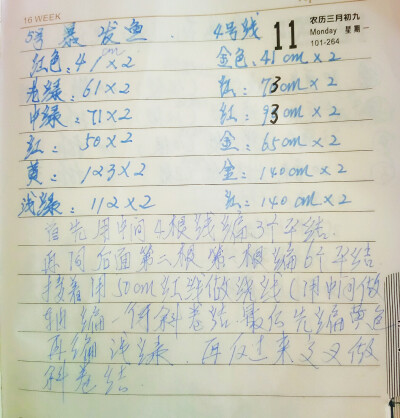 16 WEEK
农历三月初九
11 Monday 星期一
101-264
5号 暴发鱼 4号线
红色:41cm×2 金色:41cm×2
先绿:61×2 红:73cm×2
中绿:71×2 红:93cm×2
红:50×2 金:65cm×2
黄:123×2 金:140cm×2
浅绿:112×2 红:140cm×2
首先用中间4根线编3个平结
再向后面第二根第一根编6个平结
接着用50cm红线做绕线(用中间做
轴编一侧斜卷结 最后先编黄色
再编浅绿 再反过来交叉做
斜卷结